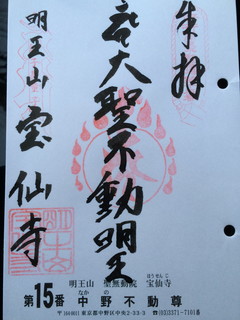 奉拝
大聖不動明王
明王山
宝仙寺
明王山 聖無動院 宝仙寺
ほうせんじ
第15番 中野不動尊
なかの
東京都中野区中央2-33-3 ☎(03)3371-7101番